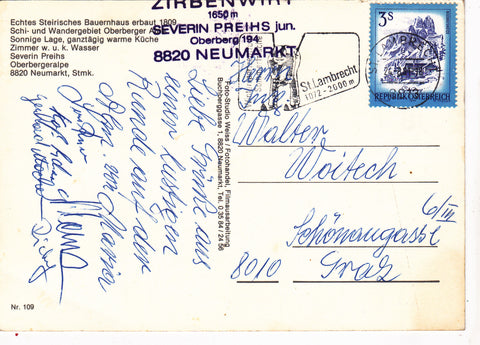 Echtes Steirisches Bauernhaus erbaut 1809
Schi- und Wandergebiet Oberberger A
Sonnige Lage, ganztägig warme Küche
Zimmer w. u. k. Wasser
Severin Preihs
Oberbergeralpe
8820 Neumarkt, Stmk.
ZIRBENWIRT
1650 m
SEVERIN PREIHS jun.
Oberberg 194
8820 NEUMARKT
Foto-Studio Weiss / Fotohandel, Filmausarbeitung
Buchberggasse 1, 8820 Neumarkt, Tel. 0 35 84 / 24 56
Liebe Grüße aus
einer lustigen
Runde auf der
von Maria
St. Lambrecht
1072 - 2000 m
3 S
REPUBLIK ÖSTERREICH
Herrn
Walter
Woitech
6/III
Schönaugasse
8010 Graz
Nr. 109